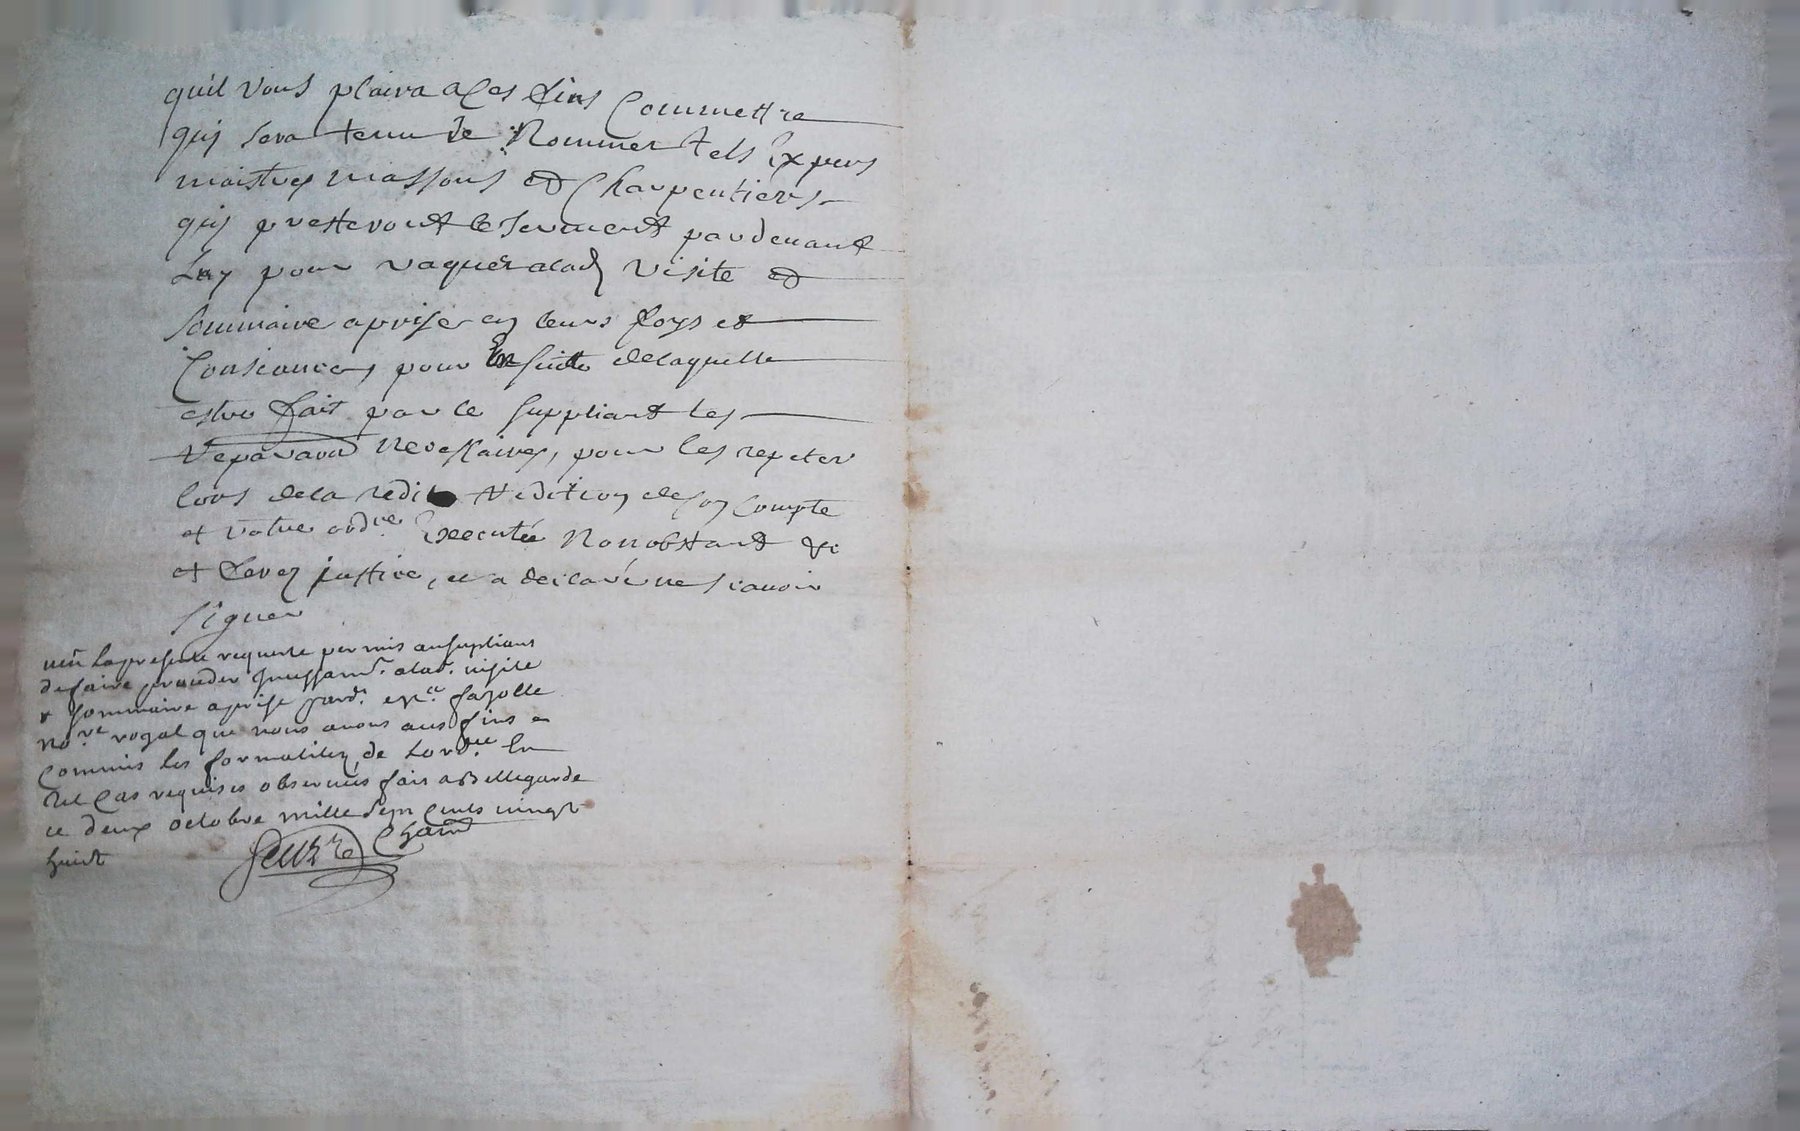 quil vous plaira a ces fins Commettre
quy sera tenu de Nommer tels Expers
maistres massons et Charpentiers
quy presteront le serment pardevant
Luy pour vaquer a lad visite et
sommaire aprise en leurs foys et
Consiances, pour En suitte de laquelle
estre fait par le suppliant les
reparaons necessaires, pour les repeter
lors de la reddition de son Compte
et votre ordre Executée Nonobstant &c
et ferez justice, et a declaré ne scavoir
signer
veu la presente requeste permis au supliant
de faire proceder a lad. visite
& sommaire aprise pard. Me fazolle
nore royal que nous avons aux fins
commis les formalitez de Lordce En
tel Cas requises observées fait a Bellegarde
ce deux octobre mille sept Cents vingt
huict